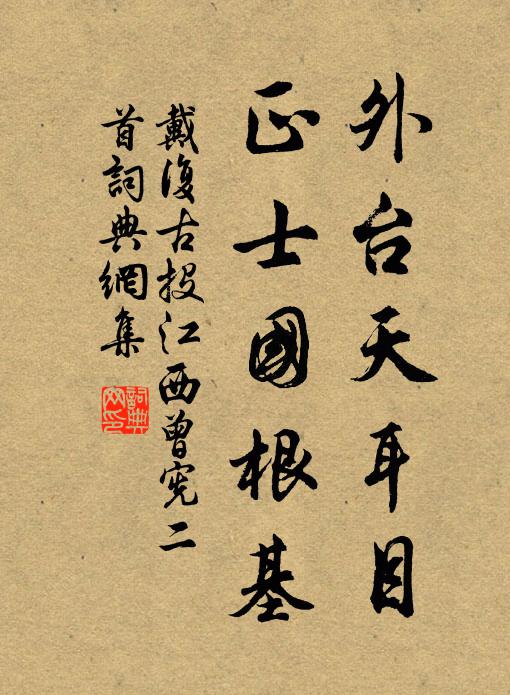 外台天耳目
正士國根基
戴復古投江西曾宪二
首詞典網集
詞典網印